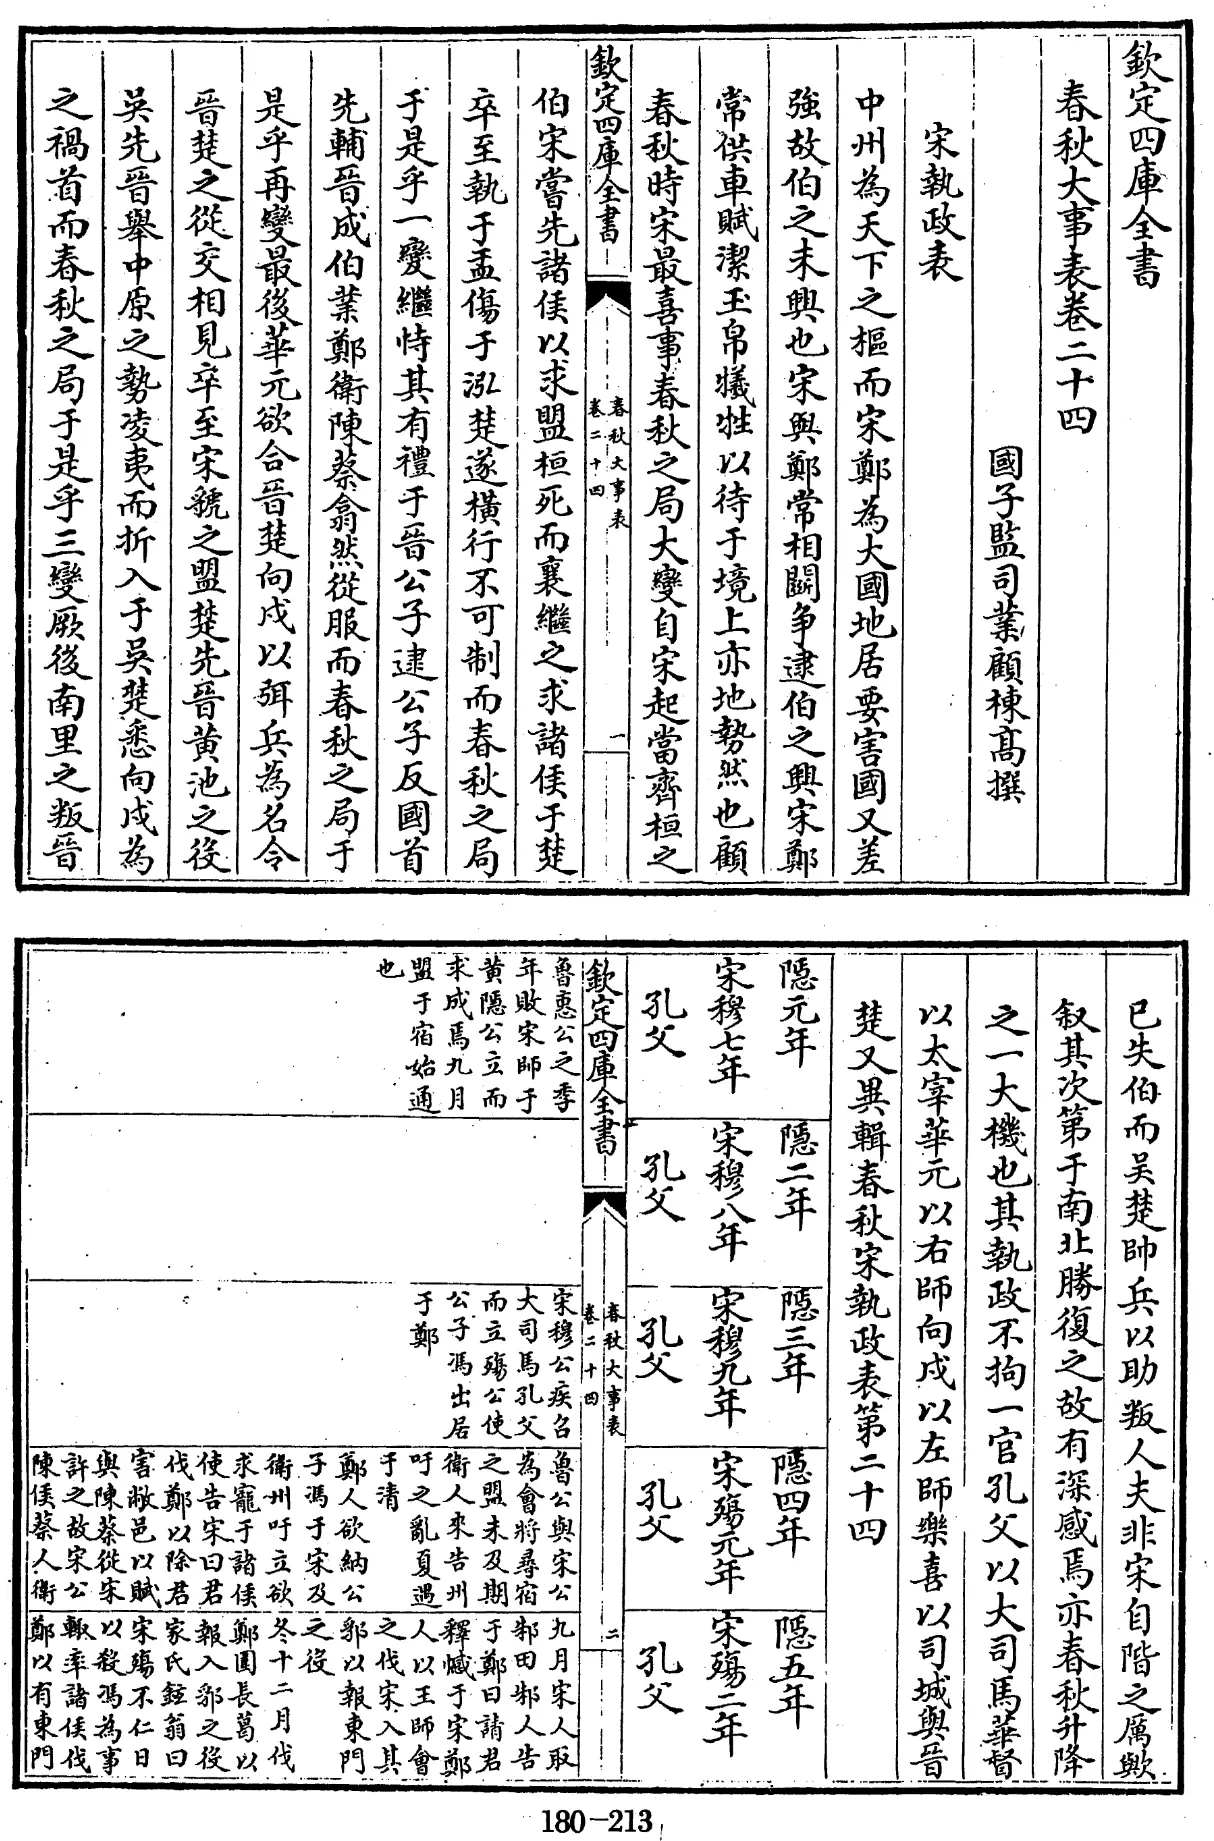 欽定四庫全書
春秋大事表卷二十四
國子監司業顧棟高撰
宋執政表
中州為天下之樞而宋鄭為大國地居要害國又差
強故伯之未興也宋與鄭常相鬭争逮伯之興宋鄭
常供車賦潔玉帛犧牲以待于境上亦地勢然也顧
春秋時宋最喜事春秋之局大變自宋起當齊桓之
欽定四庫全書
春秋大事表
卷二十四
一
伯宋嘗先諸侯以求盟桓死而襄繼之求諸侯于楚
卒至執于盂傷于泓楚遂橫行不可制而春秋之局
于是乎一變繼恃其有禮于晉公子逮公子反國首
先輔晉成伯業鄭衛陳蔡翕然從服而春秋之局于
是乎再變最後華元欲合晉楚向戌以弭兵為名令
晉楚之從交相見卒至宋虢之盟楚先晉黄池之役
吳先晉舉中原之勢凌夷而折入于吳楚悉向戌為
之禍首而春秋之局于是乎三變厥後南里之叛晉
已失伯而吴楚帥兵以助叛人夫非宋自階之厲歟
叙其次第于南北勝復之故有深感焉亦春秋升降
之一大機也其執政不拘一官孔父以大司馬華督
以太宰華元以右師向戌以左師樂喜以司城與晉
楚又異輯春秋宋執政表第二十四
隠元年
宋穆七年
孔父
隠二年
宋穆八年
孔父
隠三年
宋穆九年
孔父
隠四年
宋殤元年
孔父
隠五年
宋殤二年
孔父
欽定四庫全書
春秋大事表
卷二十四
二
魯惠公之季
年敗宋師于
黄隠公立而
求成焉九月
盟于宿始通
也
宋穆公疾召
大司馬孔父
而立殤公使
公子馮出居
于鄭
魯公與宋公
為會將尋宿
之盟未及期
衛人來告州
吁之亂夏遇
于清
鄭人欲納公
子馮于宋及
衛州吁立欲
求寵于諸侯
使告宋曰君
伐鄭以除君
害敝邑以賦
與陳蔡從宋
許之故宋公
陳侯蔡人衛
九月宋人取
邾田邾人告
于鄭曰請君
釋憾于宋鄭
人以王師會
之伐宋入其
郛以報東門
之役
冬十二月伐
鄭圍長葛以
報入郛之役
家氏鉉翁曰
宋殤不仁日
以殺馮為事
輙率諸侯伐
鄭以有東門
180-213